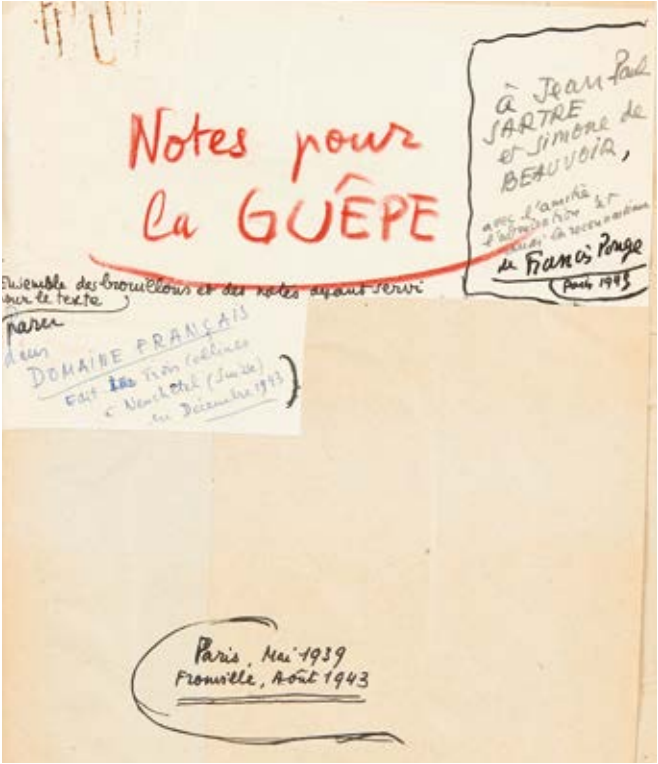 Notes pour
la GUÊPE
à Jean Paul
SARTRE
et Simone de
BEAUVOIR,
avec l'amitié,
l'admiration et
aussi la reconnaissance
de Francis Ponge
Paris 1943
Ensemble des brouillons et des notes ayant servi
pour le texte
paru
dans
DOMAINE FRANÇAIS
Edit Trois Collines
à Neuchâtel (Suisse)
en Décembre 1943)
Paris, Mai 1939
Fronville, Août 1943